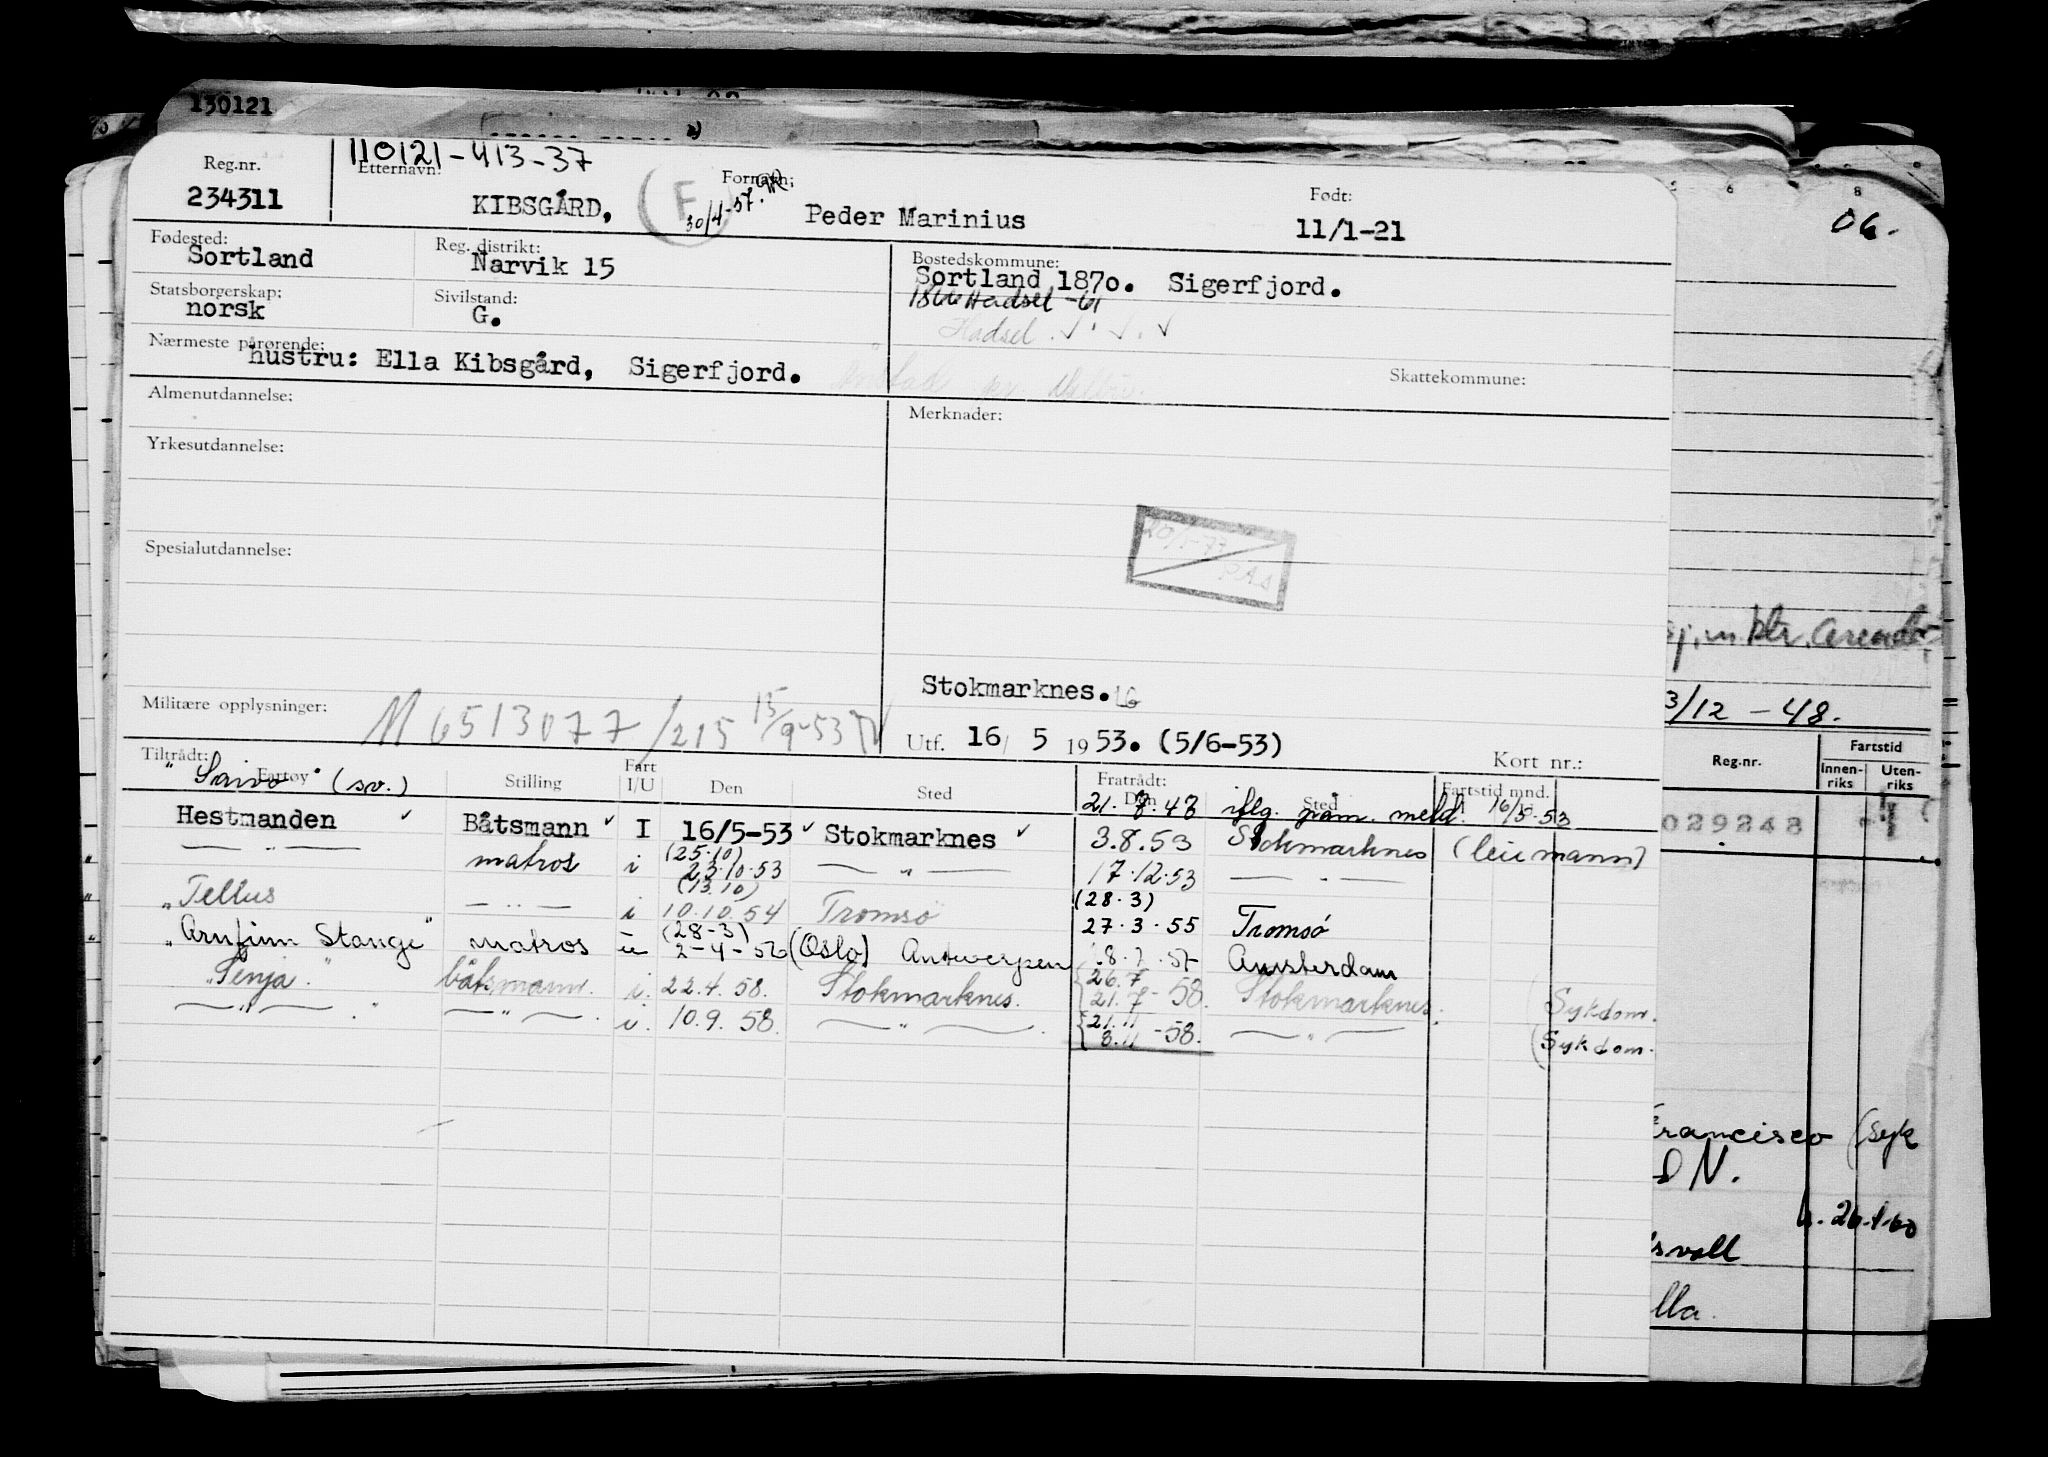 130121
110121-413-37
Reg.nr. Etternavn: Fornavn; Født:
234311 KIBSGÅRD, (F) 30/4-57. Peder Marinius 11/1-21
Fødested: Reg. distrikt: Bostedskommune:
Sortland Narvik 15 Sortland 1870. Sigerfjord.
Statsborgerskap: Sivilstand: 1866 Hadsel -61
norsk G. Hadsel
Nærmeste pårørende:
hustru: Ella Kibsgård, Sigerfjord. Skattekommune:
Almenutdannelse: Merknader:
Yrkesutdannelse:
20/1-77
Spesialutdannelse:
Stokmarknes.
Militære opplysninger: M 6513077/215 15/9-53
Utf. 16/ 5 1953. (5/6-53) Kort nr.:
Tiltrådt: Fratrådt:
Fartøy Stilling Fart I/U Den Sted Den Sted Fartstid mnd.
"Saivo" (sv.) 21.7.47 iflg. møn. meld. 16/5.53
Hestmanden Båtsmann I 16/5-53 Stokmarknes 3.8.53 Stokmarknes (leiemann)
— " — matros i (25.10) 23.10.53 — " — 17.12.53 — " —
"Tellus — " — i (13.10) 10.10.54 Tromsø (28.3) 27.3.55 Tromsø
"Arnfinn Stange" matros u (28-3) 2-4-56 (Oslo) Antwerpen 8.7.57 Amsterdam
"Senja" båtsmann. i. 22.4.58. Stokmarknes. 26.7 21.7-58. Stokmarknes. (Sykdom.
— " — . — " — . i. 10.9.58. — " — . 21.11 3.11-58. — " — (Sykdom.
06.
3/12-48.
Reg.nr. Fartstid
Innen-riks Uten-riks
029248
Francisco (syk
DN.
h. 26.1.60
svoll
lla.